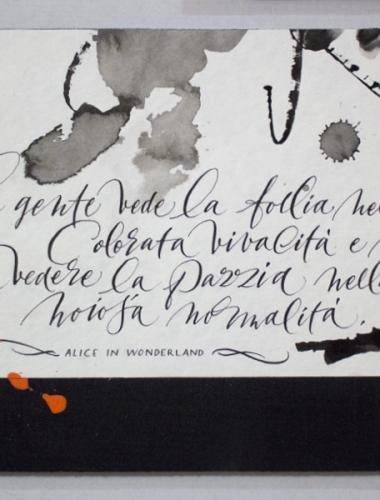 gente vede la follia nel
Colorata vivalità e
vedere la pazzia nell
noiosa normalità.
ALICE IN WONDERLAND